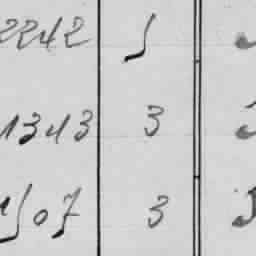 2242 5
1313 3
1507 3